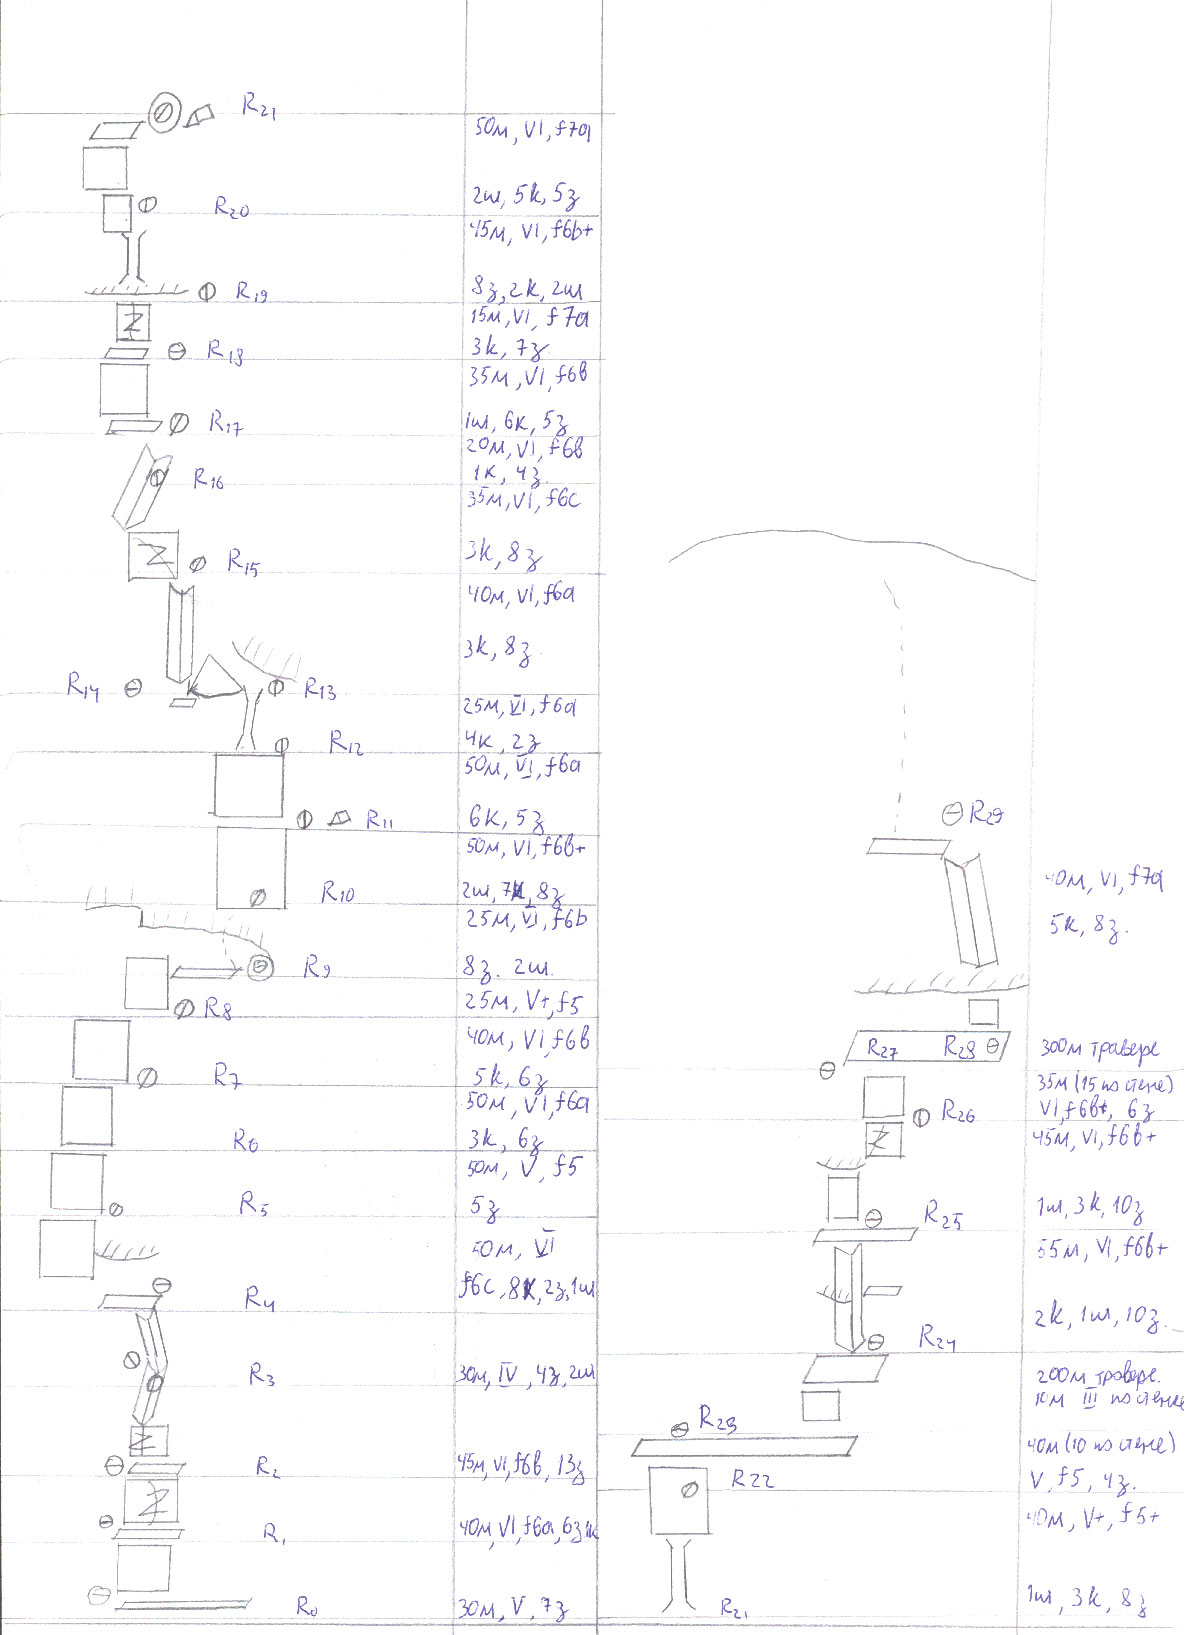 R21
50м, VI, f7a
2ш, 5к, 5з
R20
45м, VI, f6b+
8з, 2к, 2ш
R19
15м, VI, f7a
3к, 7з
R18
35м, VI, f6b
1ш, 6к, 5з
R17
20м, VI, f6b
1к, 4з.
R16
35м, VI, f6c
3к, 8з
R15
40м, VI, f6a
3к, 8з
R14
R13
25м, VI, f6a
4к, 2з
R12
50м, VI, f6a
6к, 5з
R11
50м, VI, f6b+
2ш, 7к, 8з
R10
25м, VI, f6b
8з. 2ш.
R9
25м, V+, f5
R8
40м, VI, f6b
5к, 6з
R7
50м, VI, f6a
3к, 6з
R6
50м, V, f5
5з
R5
50м, VI
f6c, 8к, 2з, 1ш
R4
R3
30м, IV, 4з, 2ш
R2
45м, VI, f6b, 13з
R1
40м, VI, f6a, 6з
R0
30м, V, 7з
R29
40м, VI, f7a
5к, 8з.
R27
R28
300м траверс
35м (15 по стене)
VI, f6b+, 6з
R26
45м, VI, f6b+
1ш, 3к, 10з
R25
55м, VI, f6b+
2к, 1ш, 10з.
R24
200м траверс.
10м III по стенке
R23
40м (10 по стене)
V, f5, 4з.
R22
40м, V+, f5+
1ш, 3к, 8з
R21